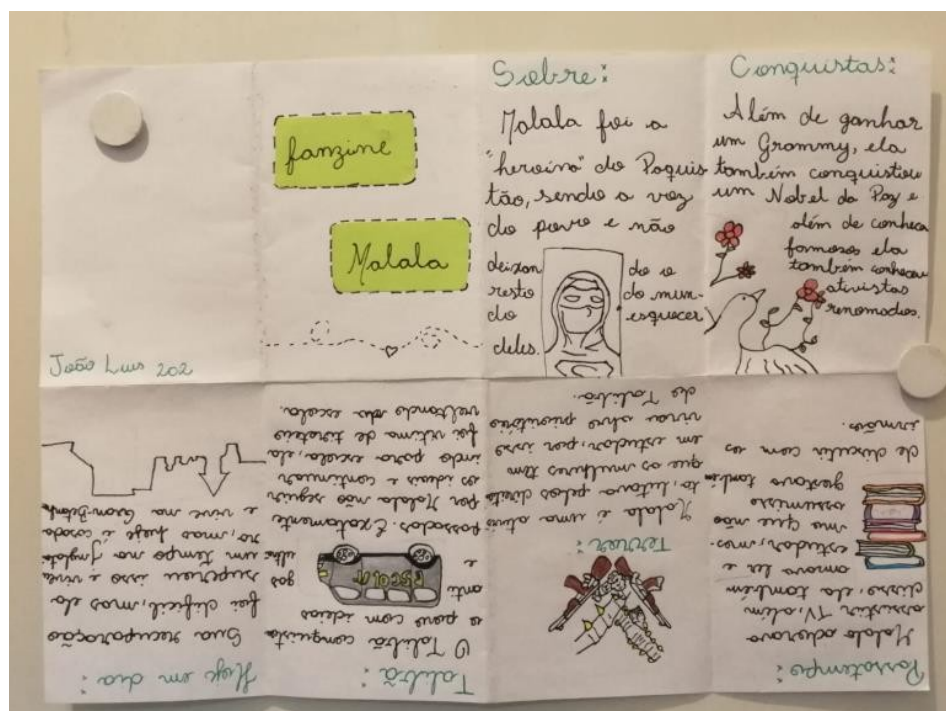 fanzine
Malala
João Luis 202
Sobre:
Malala foi a
"heroína" do Paquis
tão, sendo a voz
do povo e não
deixan do o
resto do mun-
do esquecer
deles.
Conquistas:
Além de ganhar
um Grammy, ela
também conquistou
um Nobel da Paz e
além de conhecer
famosos ela
também conheceu
ativistas
renomados.
Passatempo:
Malala adorava
assistir TV, além
disso, ela também
amava ler e
estudar, mes-
mo que não
assumisse
gostava também
de discutir com os
irmãos.
Terror:
Malala é uma ativis
ta, lutava pelos direito
que as mulheres têm
em estudar, por isso
virou alvo prioritário
do Talibã.
Talibã:
O Talibã conquista
o povo com ideias
anti gas
e ultra
passadas. Exatamente
por Malala não seguir
as ideias e continuar
indo para escola, ela
foi vítima de tiroteio
voltando da escola.
ESCOLAR
Hoje em dia:
Sua recuperação
foi difícil, mas ela
superou isso e viveu
um tempo na Inglater
ra, mas hoje é casada
e vive na Gram-Betanh